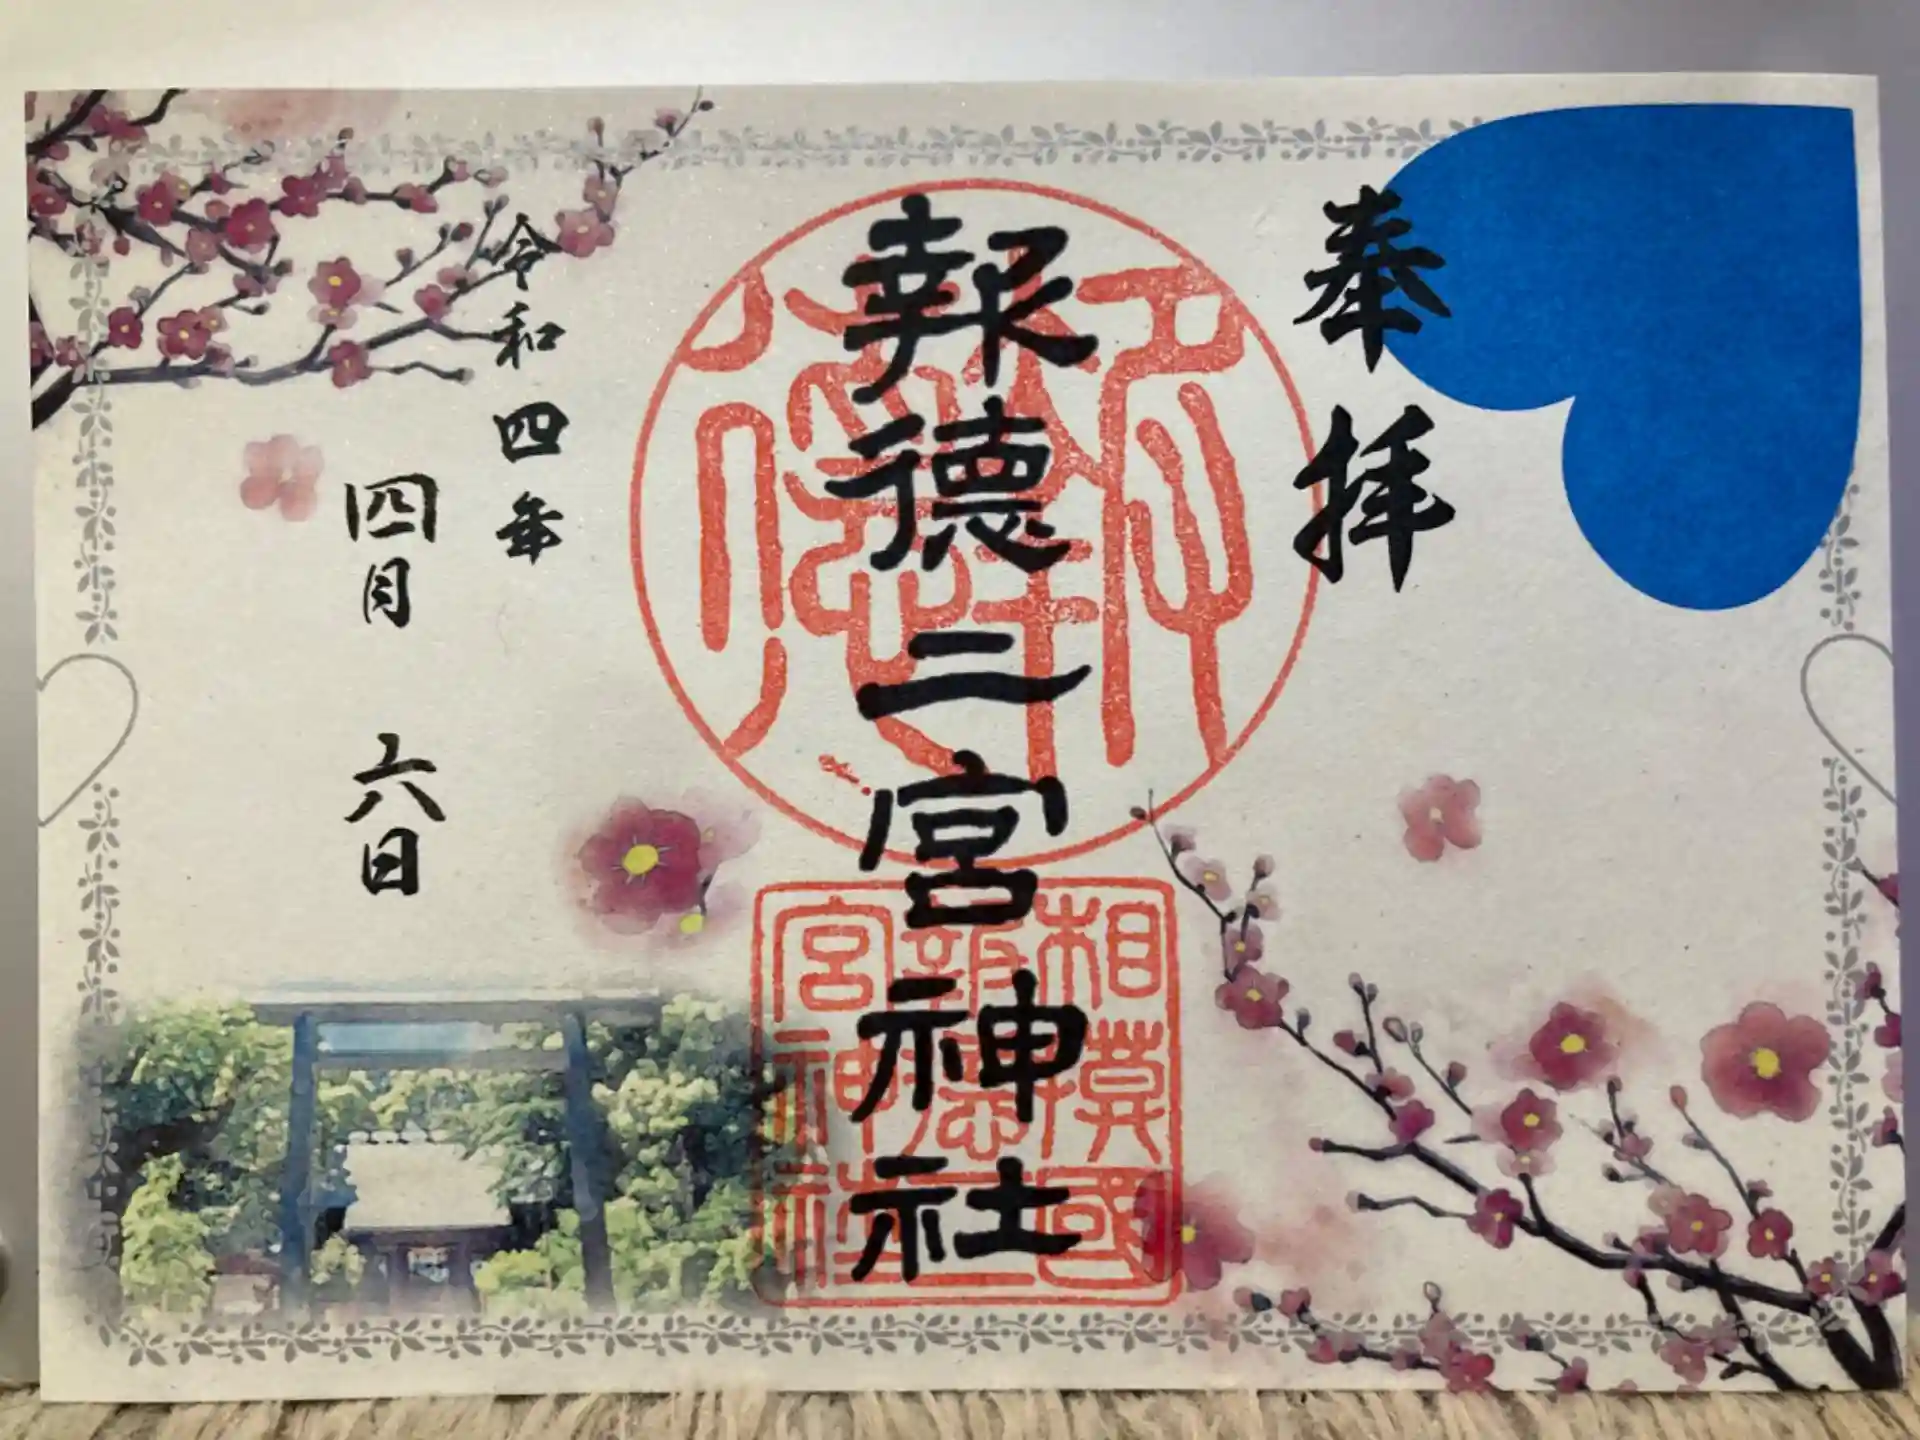 奉拝
報徳二宮神社
相模國
報徳二
宮神社
令和四年
四月六日